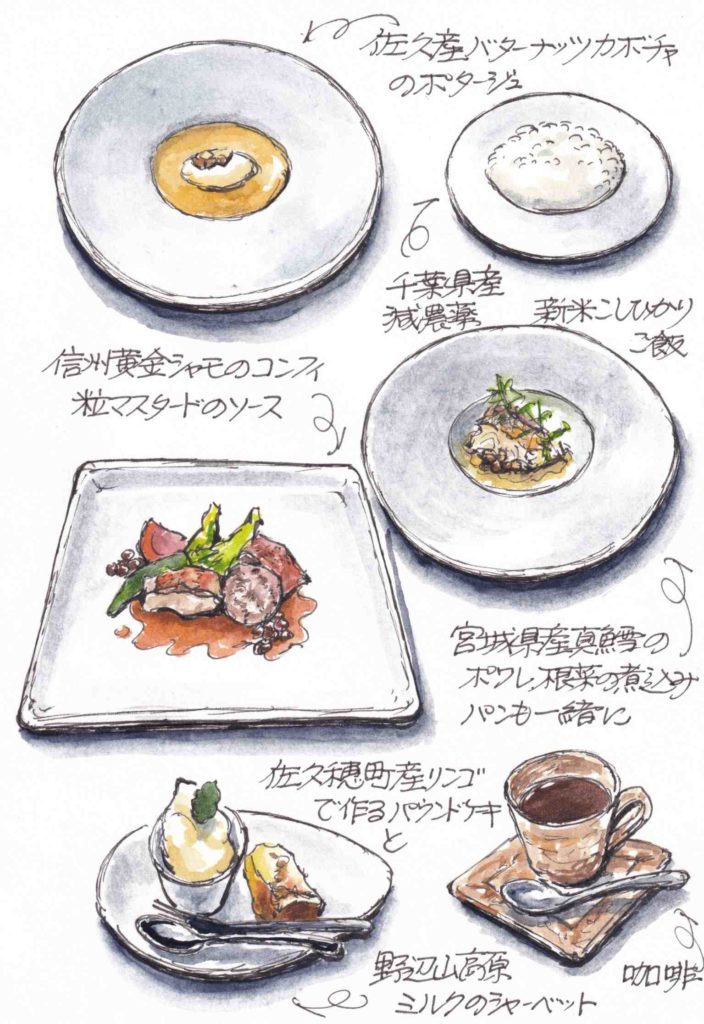 佐久産バターナッツカボチャ
のポタージュ
千葉県産
減農薬
新米こしひかり
ご飯
信州黄金シャモのコンフィ
粒マスタードのソース
宮城県産真鱈の
ポワレ、根菜の煮込み
パンも一緒に
佐久穂町産リンゴ
で作るパウンドケーキ
と
野辺山高原
ミルクのシャーベット
咖啡